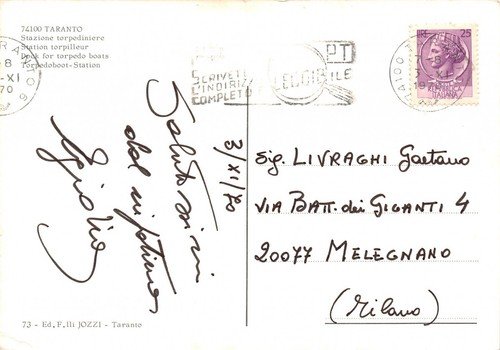 74100 TARANTO
Stazione torpediniere
Station torpilleur
Dock for torpedo boats
Torpedoboot-Station
8
XI
70
PT
SCRIVETE
L'INDIRIZZO
COMPLETO E LEGGIBILE
LIRE 25
3/XI/70
Salutissimi
dal
Sig. LIVRAGHI Gaetano
VIA BATT. dei GIGANTI 4
20077 MELEGNANO
(Milano)
73 - Ed. F.lli JOZZI - Taranto